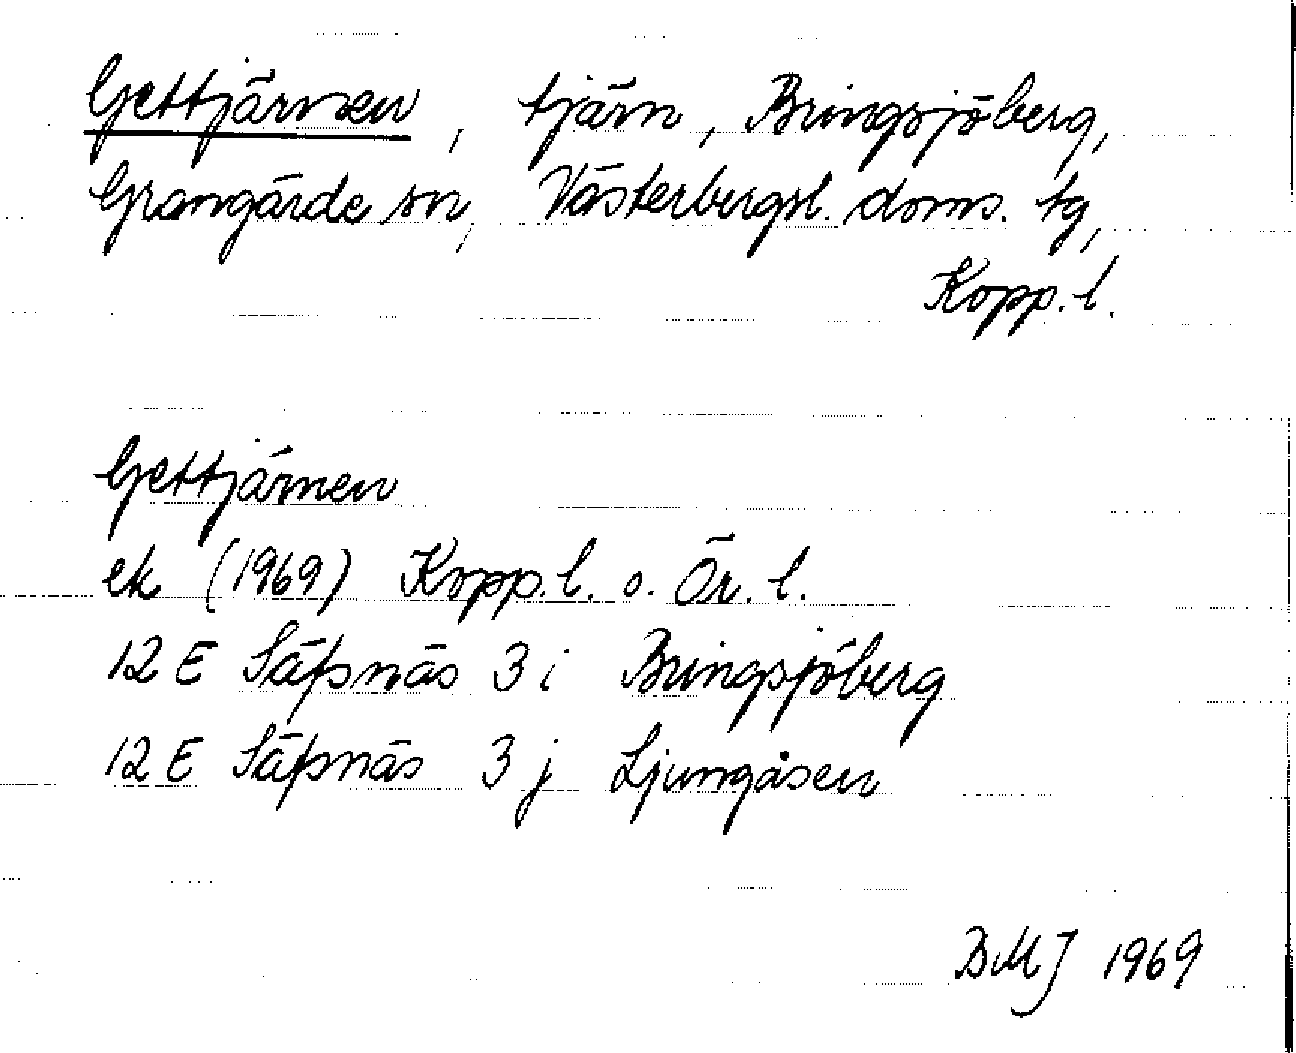 Gettjärnen, tjärn, Bringsjöberg,
Grangärde sn, Västerbergsl. doms. tg,
Kopp. l.
Gettjärnen
ek (1969) Kopp. l. o. Ör. l.
12 E Säfsnäs 3 i Bringsjöberg
12 E Säfsnäs 3 j Ljungåsen
BMJ 1969